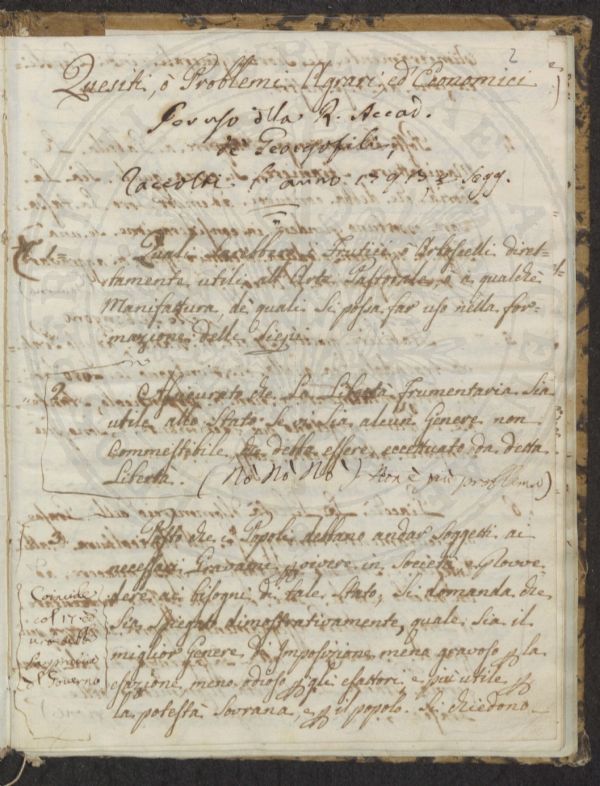 2
Quesiti, ò Problemi Agrari, ed Economici
Per uso della R. Accad.
de Georgofili,
Raccolti l' anno
Quali sarebbero i Frutici, ò Arboscelli diret-
tamente utili all' Arte Pastorale, ò a qualche
Manifattura, de quali si possa far uso nella for-
mazione delle siepi.
2. Assicurati che la Libertà Frumentaria sia
utile allo Stato se vi sia alcun Genere non
Commestibile, che debba essere eccettuato da detta
Libertà. (Nò Nò Nò) non è più problema)
Posto che i Popoli debbano andar soggetti ai
necessari Gravami p vivere in Società, e provve
dere ai bisogni di tale Stato; si domanda che
sia spiegato dimostrativamente, quale sia il
miglior Genere d' Imposizione meno gravoso p la
esazione, meno odioso p gli esattori e più utile p
la potestà Sovrana, e p il popolo. Si chiedono
Coincide
col 17.